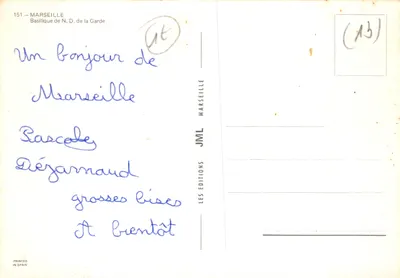 151 - MARSEILLE
Basilique de N. D. de la Garde
1t
(13)
Un bonjour de
Marseille
Pascale
Dézarnaud
grosses bises
A bientôt
LES EDITIONS JML MARSEILLE